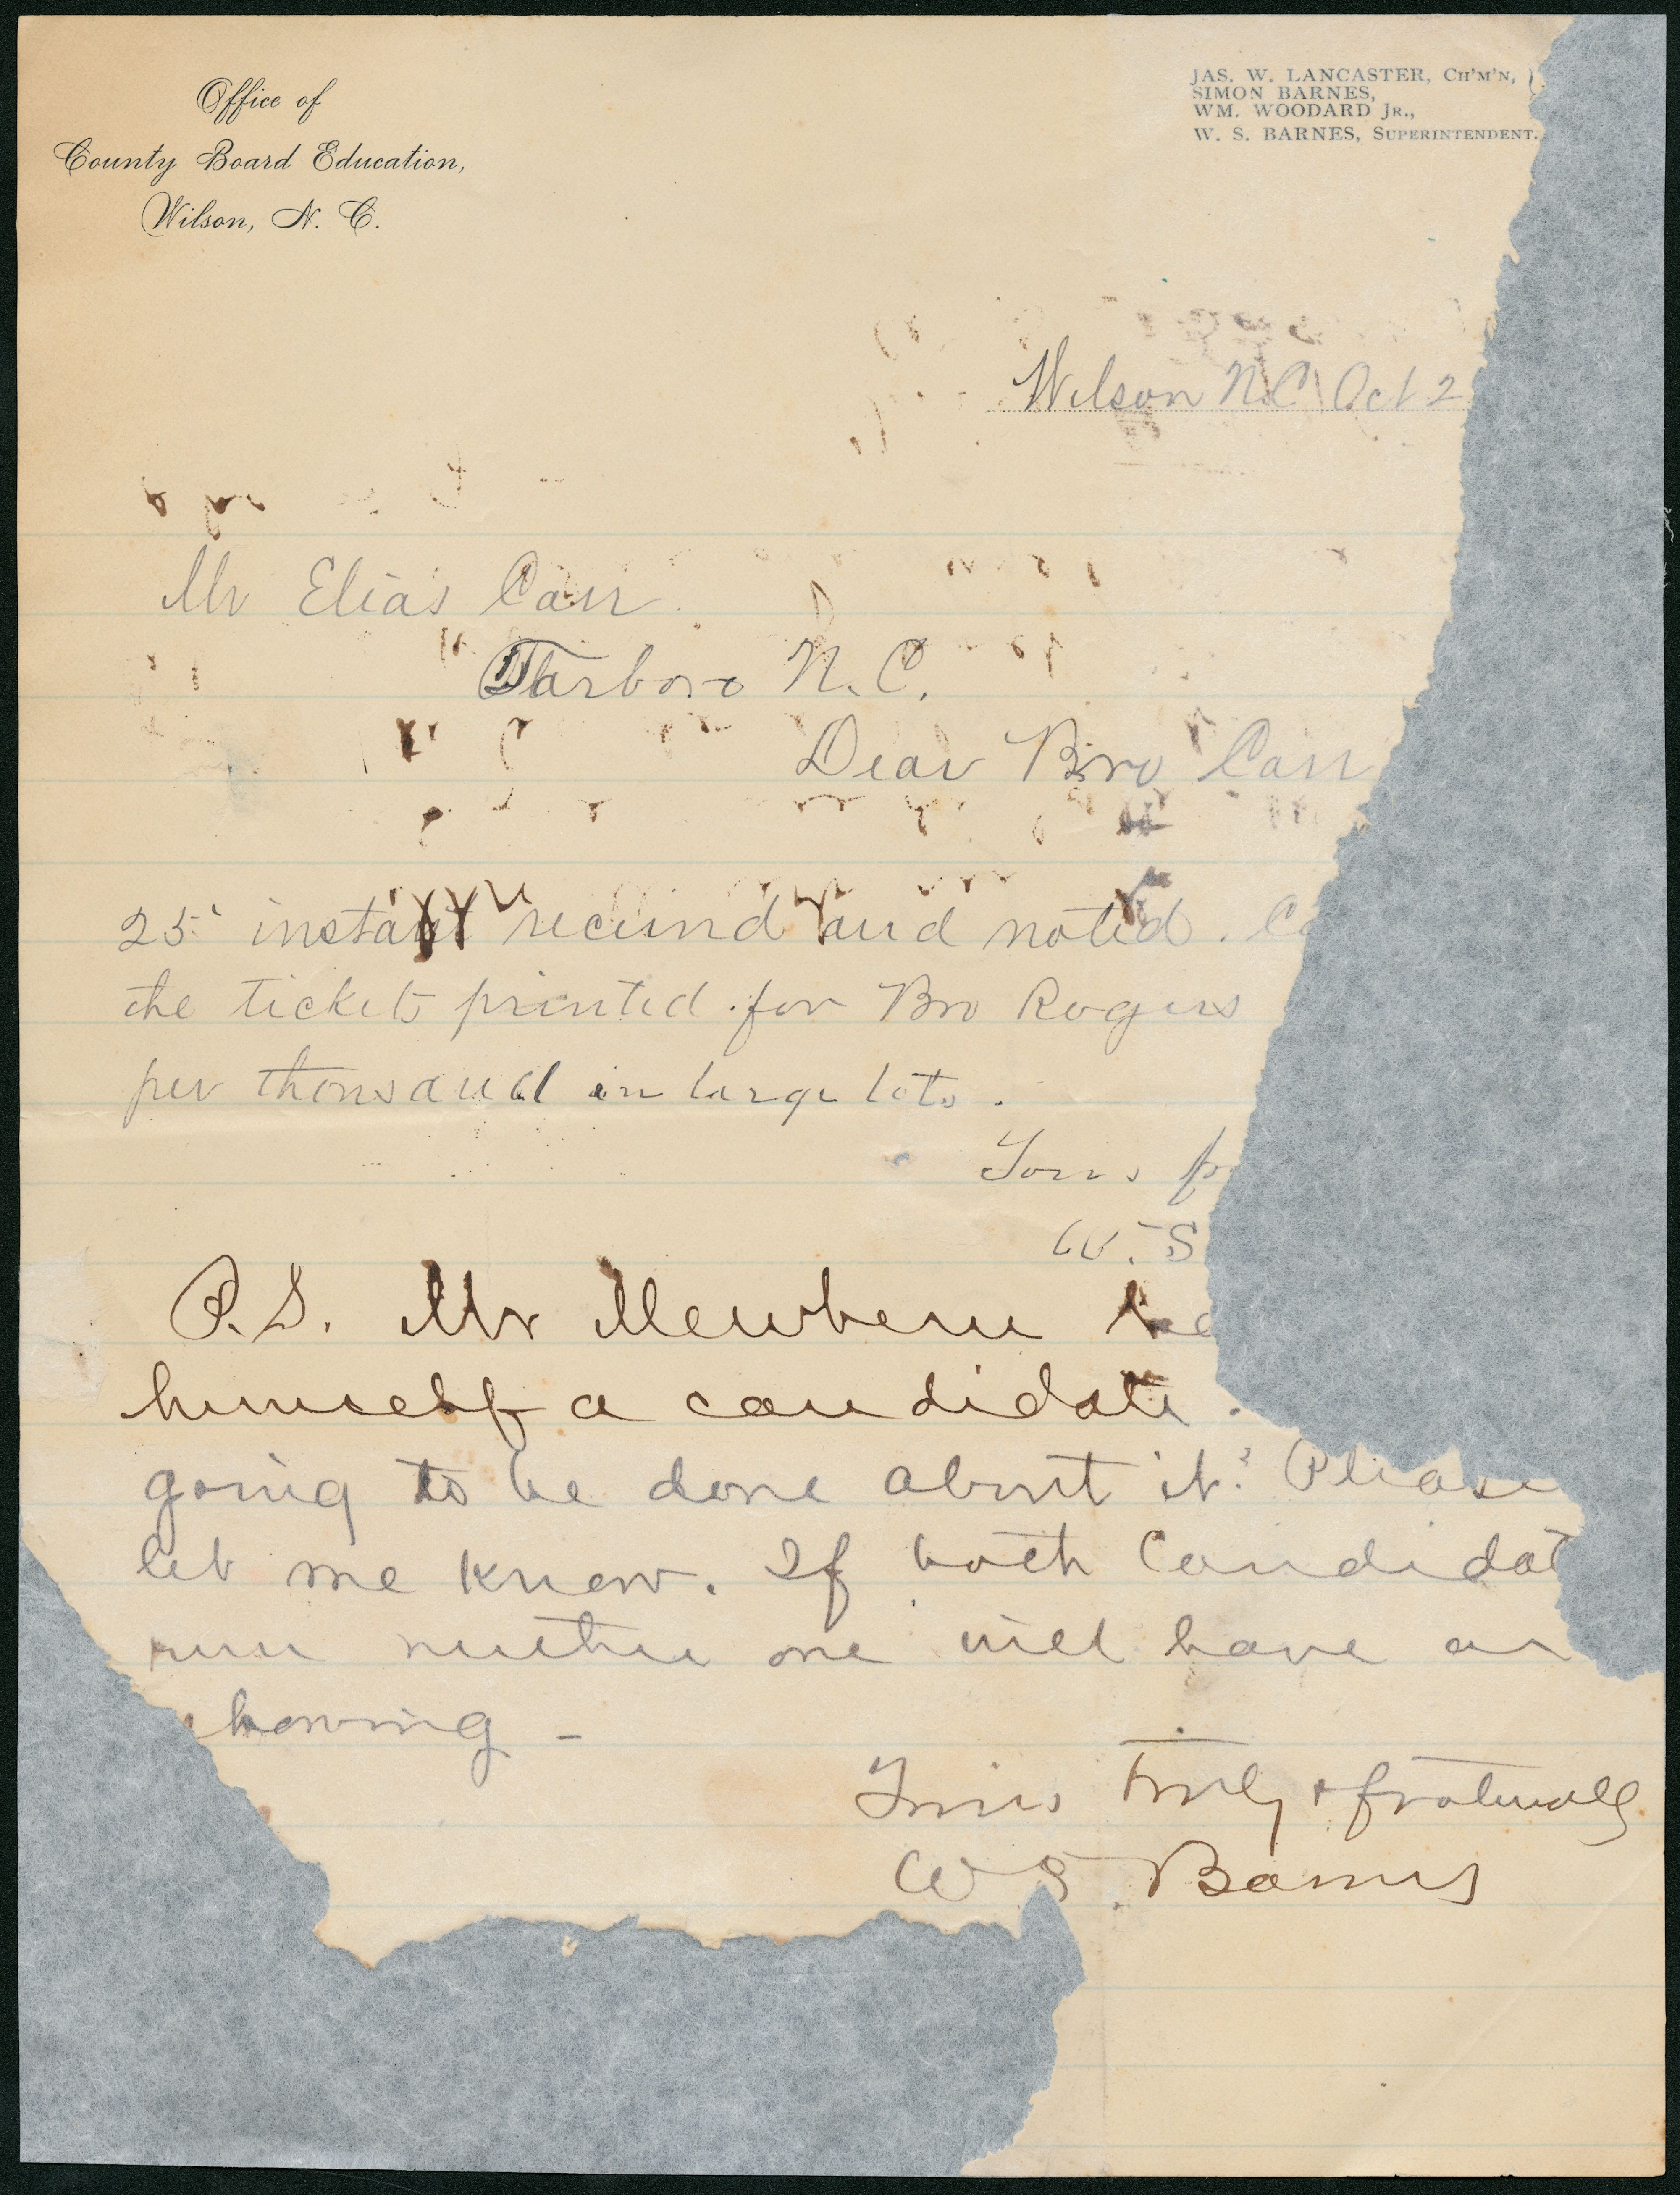 Office of
County Board Education,
Wilson, N. C.
JAS. W. LANCASTER, CH'M'N,
SIMON BARNES,
WM. WOODARD JR.,
W. S. BARNES, SUPERINTENDENT.
Wilson N.C Oct 2
Mr Elias Carr.
Tarboro N. C.
Dear Bro Carr
25 instant received and noted.
the tickets printed for Bro Rogers
per thousand in large lots.
Yours
W. S
P.S. Mr Mewbern
himself a candidate.
going to be done about it? Please
let me know. If both Candidat
run neither one will have an
showing -
Yours truly + fraternally
W S Barnes